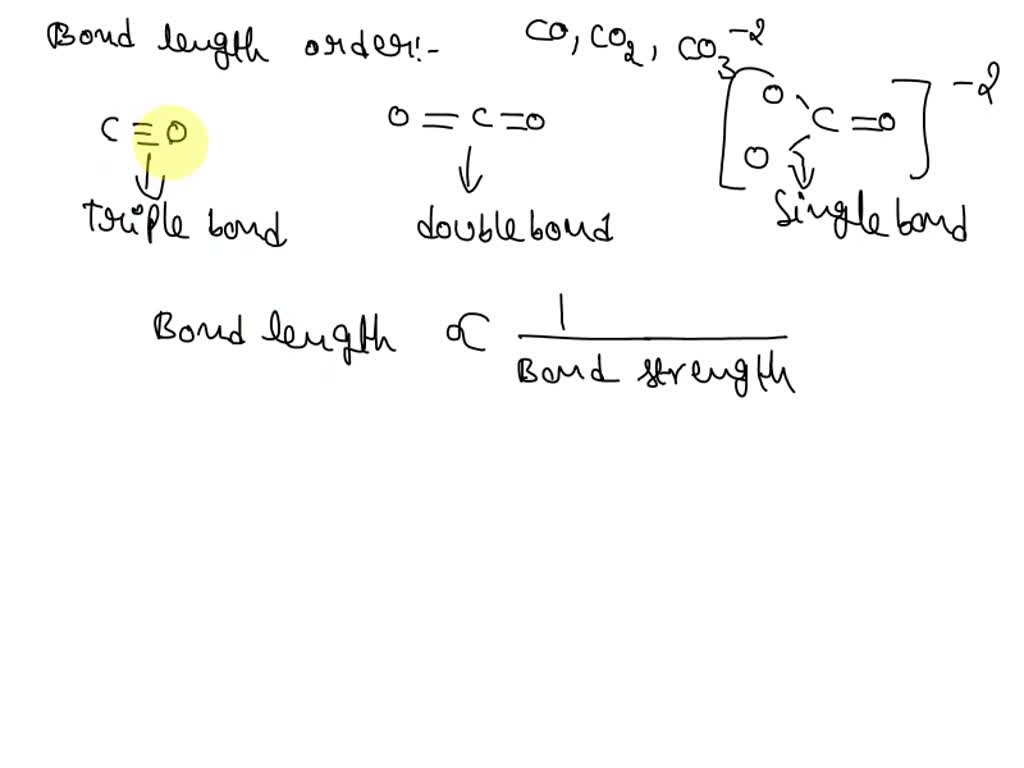 Bond length order:- CO, CO2, CO3 -2
C≡O O=C=O [O O C=O] -2
Triple bond double bond Single bond
Bond length ∝ 1 / Bond strength